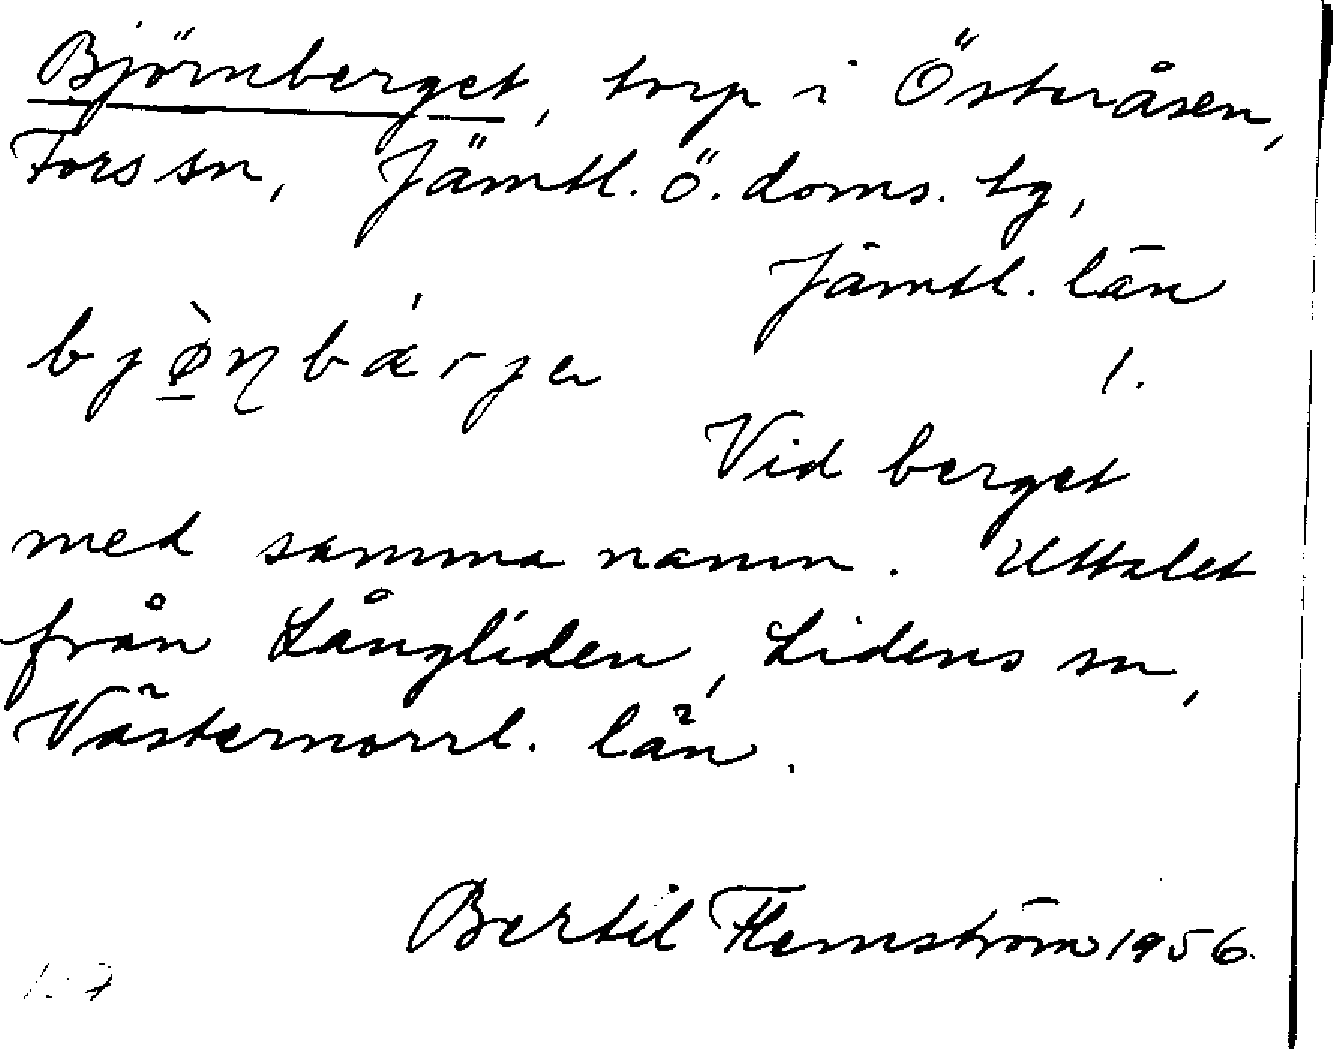 Björnberget, torp i Österåsen,
Fors sn, Jämtl. ö. doms. tg,
Jämtl. län
bjø̠̀ɳbárjɐ 1.
Vid berget
med samma namn. Uttalet
från Långliden, Lidens sn,
Västernorrl. län.
Bertil Flemström 1956.